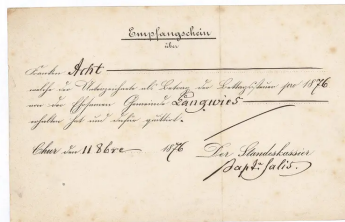 Empfangschein
über
Franken Acht
welche der Unterzeichnete als Betrag der Bettagssteuer pro 1876
von der Ehrsamen Gemeinde Langwies
erhalten hat und dafür quittiert.
Chur den 11 8bre 1876 Der Standeskassier
Bapt. Salis.